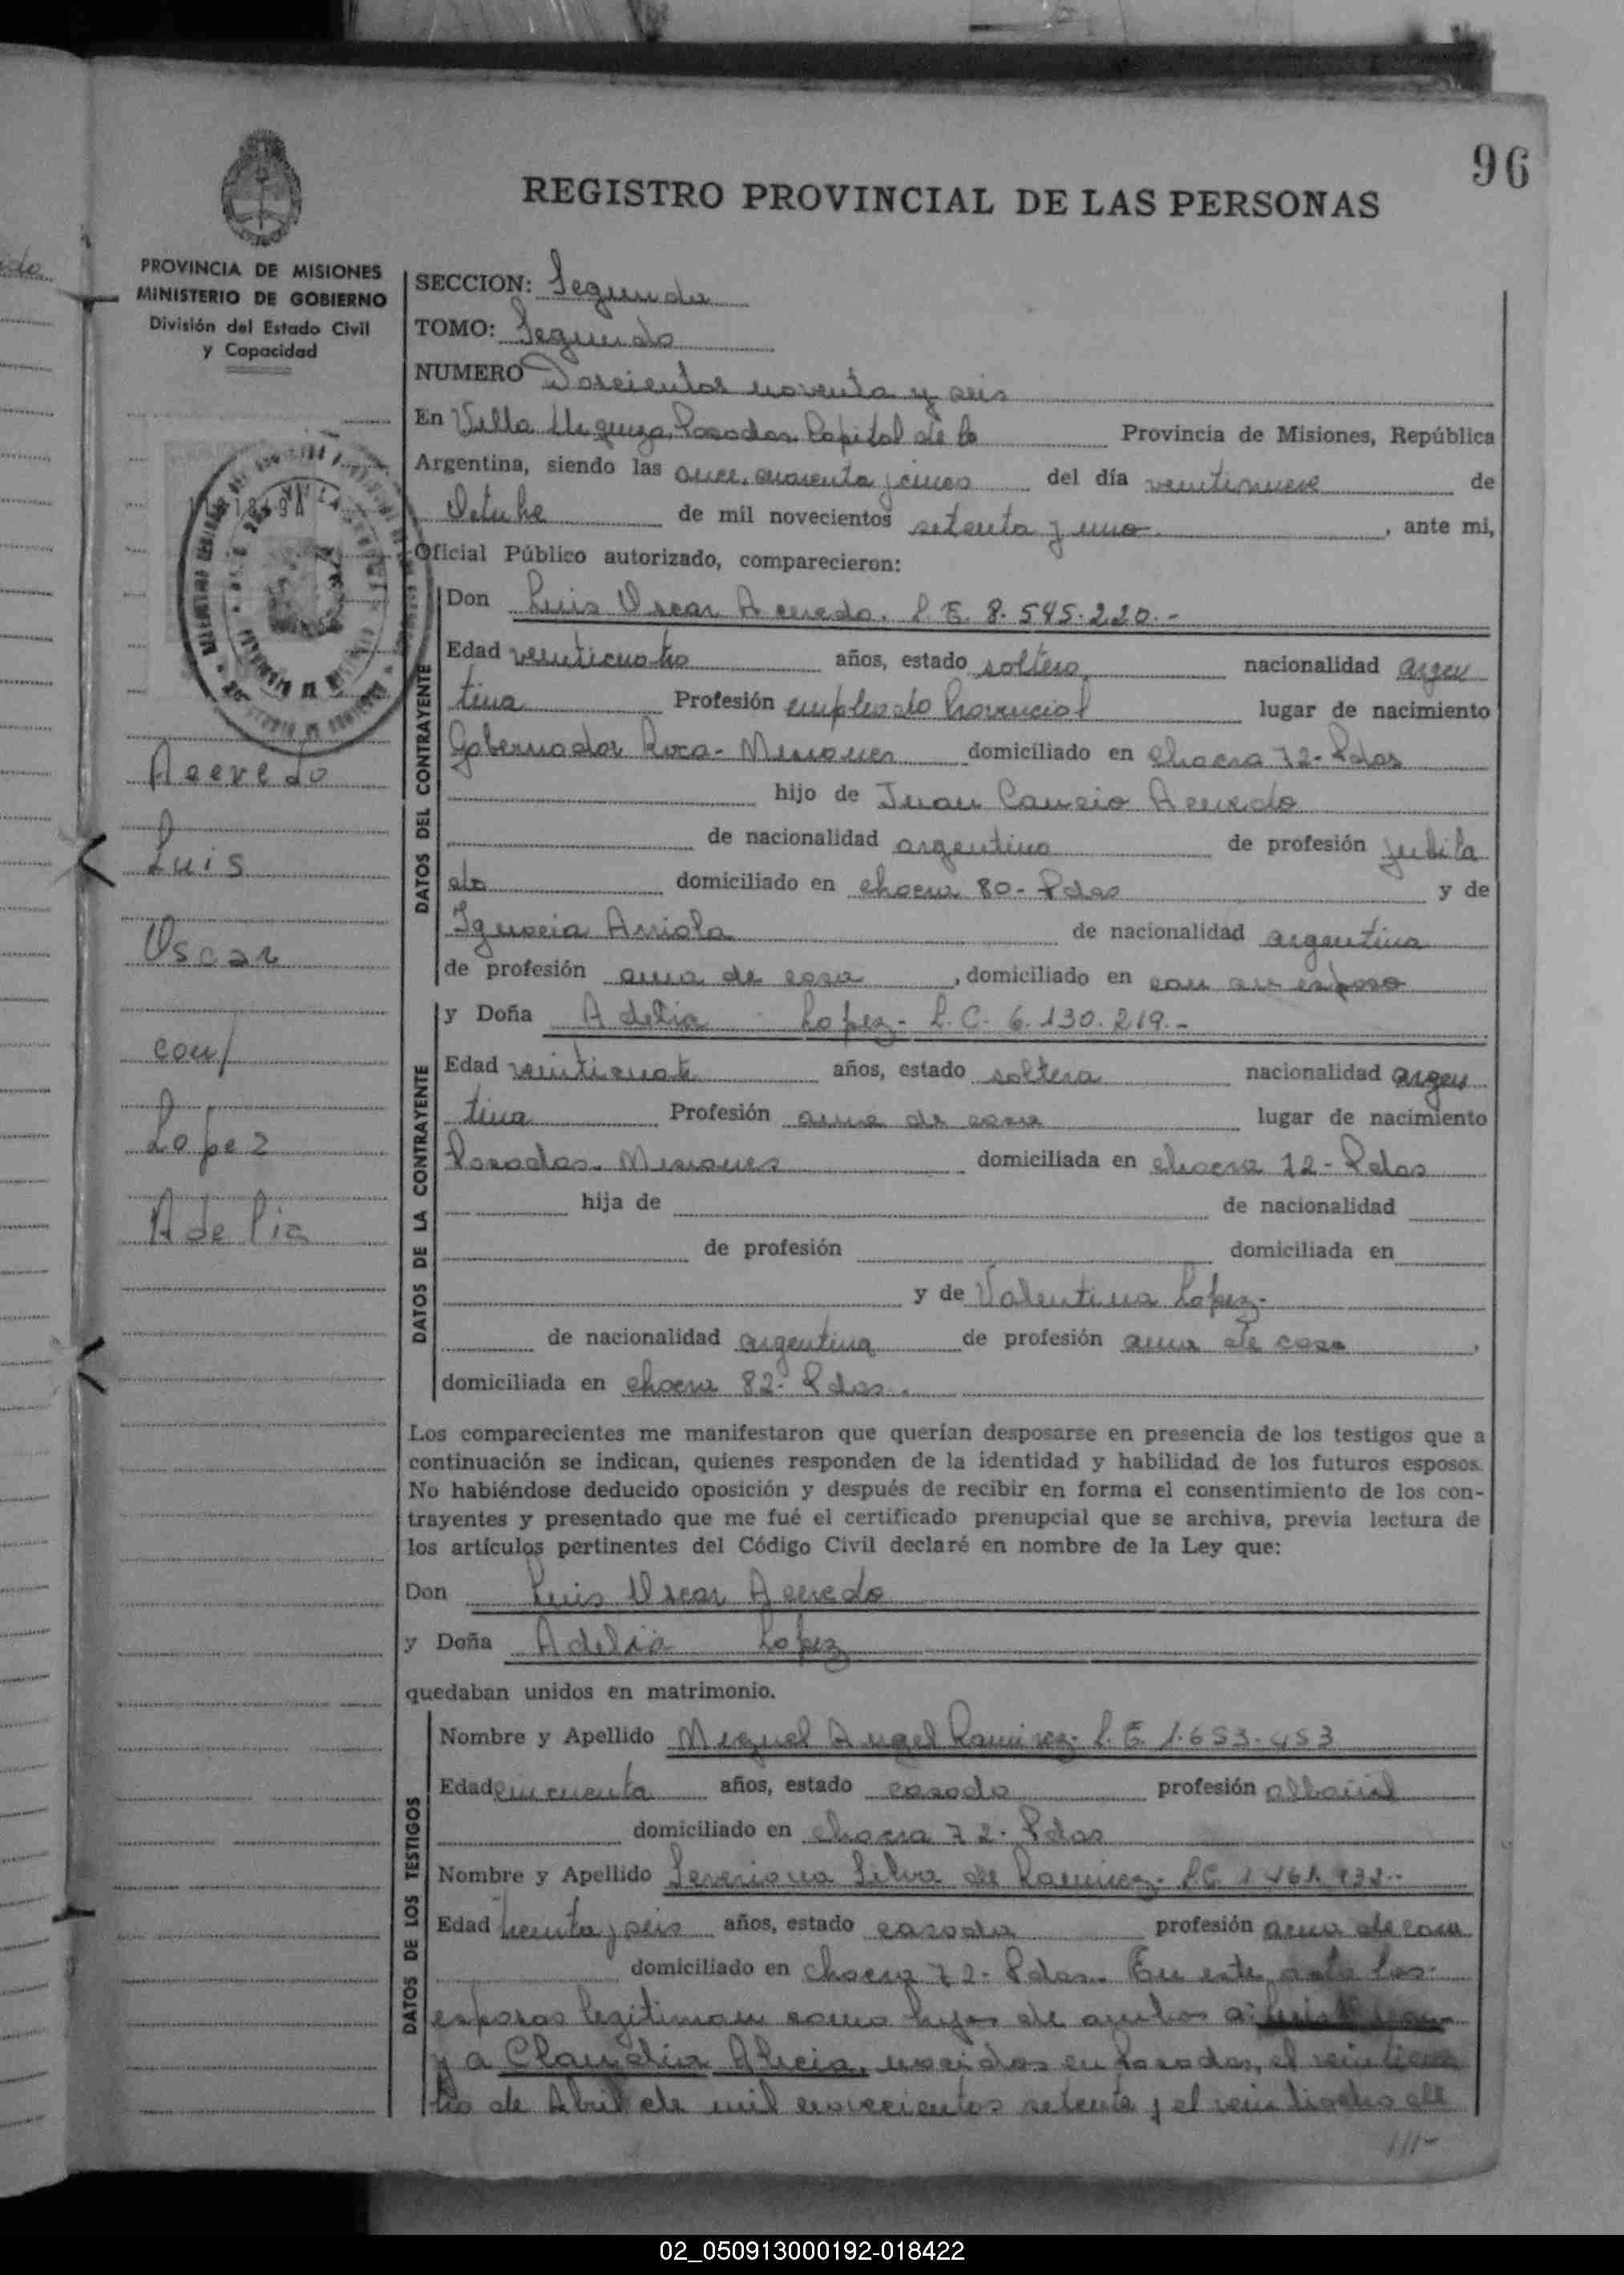 96
REGISTRO PROVINCIAL DE LAS PERSONAS
PROVINCIA DE MISIONES
MINISTERIO DE GOBIERNO
División del Estado Civil
y Capacidad
SECCION: Segunda
TOMO: Segundo
NUMERO Doscientos noventa y seis
En Villa Urquiza, Posadas Capital de la Provincia de Misiones, República
Argentina, siendo las once, cuarenta y cinco del día veintinueve de
Octubre de mil novecientos setenta y uno , ante mi,
Oficial Público autorizado, comparecieron:
Don Luis Oscar Acevedo. L.E. 8.545.220.-
Edad veinticuatro años, estado soltero nacionalidad argen
tina Profesión empleado Provincial lugar de nacimiento
Gobernador Roca - Misiones domiciliado en chacra 72- Pdas
hijo de Juan Cancio Acevedo
de nacionalidad argentino de profesión jubila
do domiciliado en chacra 80- Pdas y de
Ignacia Arriola de nacionalidad argentina
de profesión ama de casa , domiciliado en con su esposo
y Doña Adelia Lopez- L.C. 6.130.219.-
Edad veinticuatro años, estado soltera nacionalidad argen
tina Profesión ama de casa lugar de nacimiento
Posadas. Misiones domiciliada en chacra 72- Pdas
hija de de nacionalidad
de profesión domiciliada en
y de Valentina Lopez-
de nacionalidad argentina de profesión ama de casa ,
domiciliada en chacra 82- Pdas.
Los comparecientes me manifestaron que querían desposarse en presencia de los testigos que a
continuación se indican, quienes responden de la identidad y habilidad de los futuros esposos.
No habiéndose deducido oposición y después de recibir en forma el consentimiento de los con-
trayentes y presentado que me fué el certificado prenupcial que se archiva, previa lectura de
los artículos pertinentes del Código Civil declaré en nombre de la Ley que:
Don Luis Oscar Acevedo
y Doña Adelia Lopez
quedaban unidos en matrimonio.
Nombre y Apellido Miguel Angel Ramirez- L.E. 1.653.453
Edad cincuenta años, estado casado profesión albañil
domiciliado en chacra 72- Pdas
Nombre y Apellido Severiana Silva de Ramirez- L.C.
Edad treinta y seis años, estado casada profesión ama de casa
domiciliado en chacra 72- Pdas. En este acto los
esposos legitiman como hijos de ambos a:
y a Claudia Alicia, nacidos en Posadas, el veinticua
tro de Abril de mil novecientos setenta y el veintiocho de
///-
DATOS DEL CONTRAYENTE
DATOS DE LA CONTRAYENTE
DATOS DE LOS TESTIGOS
Acevedo
Luis
Oscar
con/
Lopez
Adelia
02_050913000192-018422